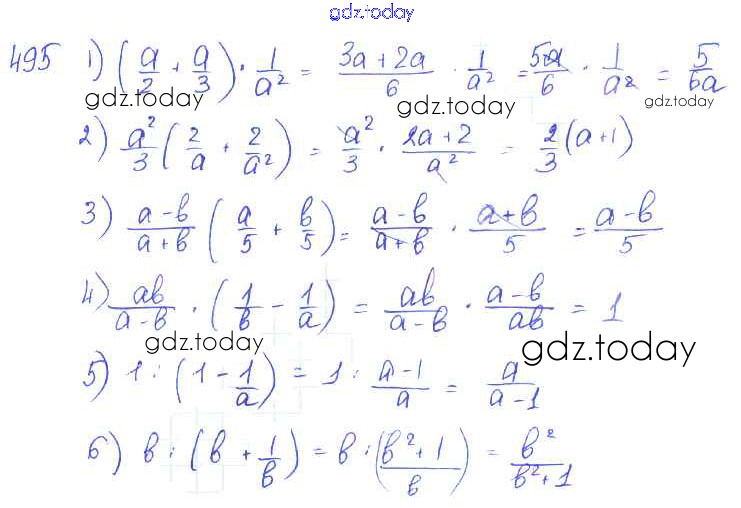 gdz.today
495 1) (a/2 + a/3) · 1/a² = (3a+2a)/6 · 1/a² = 5a/6 · 1/a² = 5/6a
gdz.today gdz.today gdz.today
2) a²/3 (2/a + 2/a²) = a²/3 · (2a+2)/a² = 2/3 (a+1)
3) (a-b)/(a+b) (a/5 + b/5) = (a-b)/(a+b) · (a+b)/5 = (a-b)/5
4) ab/(a-b) · (1/b - 1/a) = ab/(a-b) · (a-b)/ab = 1
gdz.today gdz.today
5) 1 : (1 - 1/a) = 1 : (a-1)/a = a/(a-1)
6) b : (b + 1/b) = b : ((b²+1)/b) = b²/(b²+1)